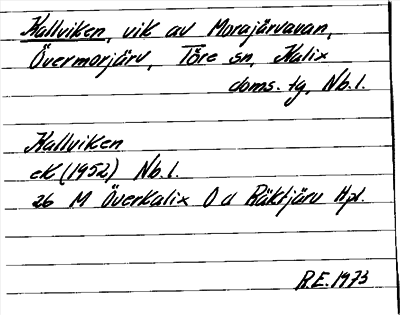 Kallviken, vik av Morajärvavan,
Övermorjärv, Töre sn, Kalix
doms. tg, Nb. l.
Kallviken
eK (1952) Nb. l.
26 M Överkalix O a Räktjärv Hpl.
R.E. 1973